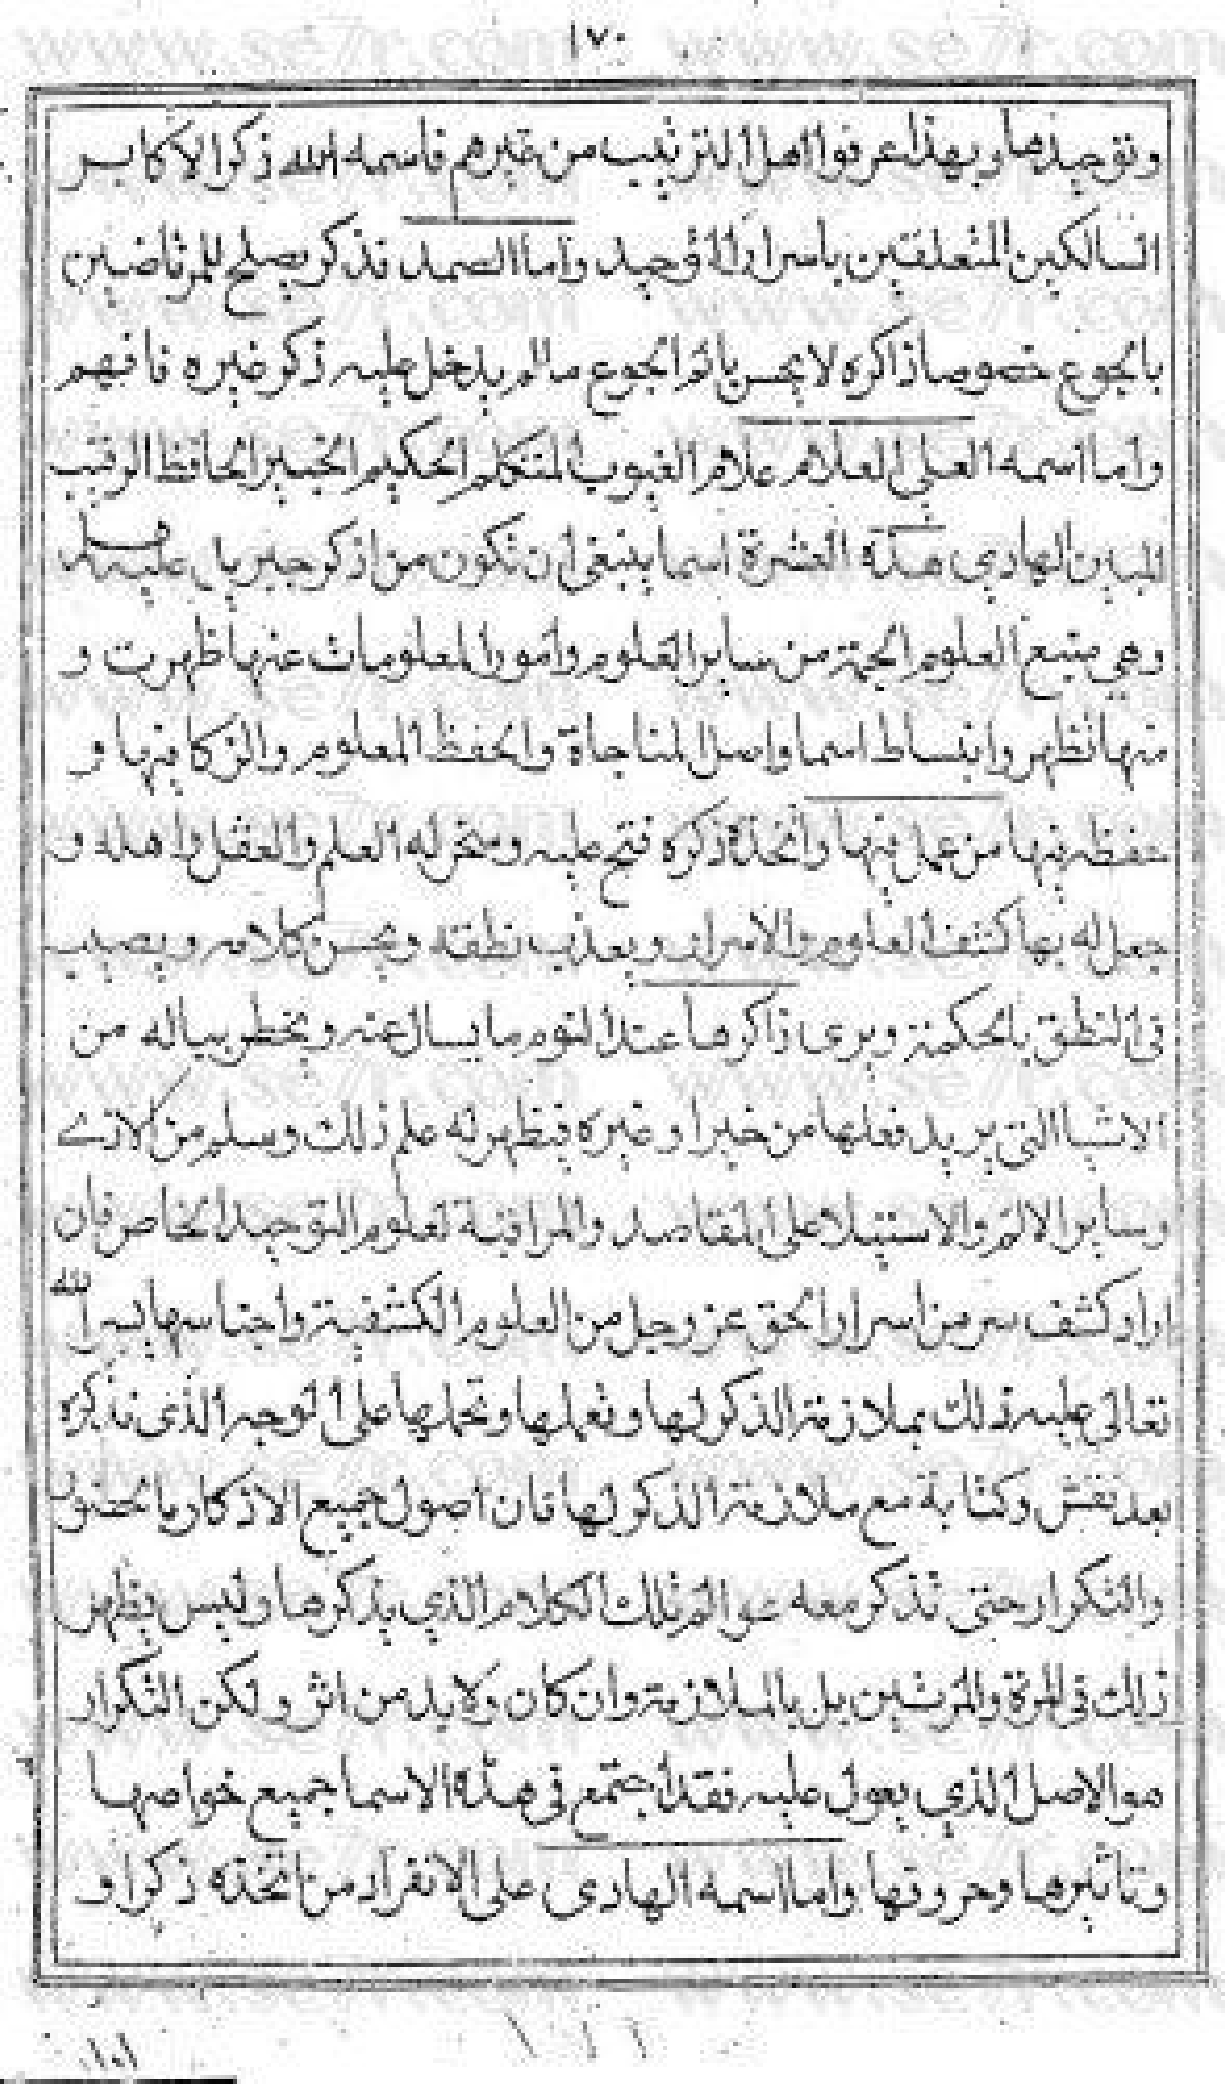 ١٧٠
وتوحيدها وبهذا عرفوا اهل الترتيب من غيرهم فاسمه الله ذكر الاكابر
السالكين المتعلقين باسرار التوحيد واما الصمد فذكر يصلح للمرتاضين
بالجوع خصوصا ذاكره لا يحس بالم الجوع مالم يدخل عليه ذكر غيره فافهم
واما اسمه العلي العلام علام الغيوب المتكلم الحكيم الخبير الحافظ الرقيب
المبين الهادي هذه العشرة اسما ينبغي ان تكون من اذكر جبريل عليه
وهي منبع العلوم الجمة من ساير العلوم وامور المعلومات عنها ظهرت و
منها تظهر وانبساط اسما واصل المناجاة والحفظ المعلوم والزكا فيها و
حفظه فيها من عمل فيها واتخذه ذكره فتح عليه وسخر له العلم والعقل واهله و
جعل له بها كشف العلوم والاسرار ويعذب نطقه ويحسن كلامه ويصيب
في النطق بالحكمة ويرى ذاكرها عند النوم ما يسال عنه ويخطر بباله من
الاشيا التي يريد فعلها من خير او غيره فيظهر له علم ذلك وسلم من الاذى
وساير الالم والاستيلا على المقاصد والمراقبة لعلوم التوحيد الخاص فان
اراد كشف سر من اسرار الحق عز وجل من العلوم الكشفية واجناسها يسر الله
تعالى عليه ذلك بملازمة الذكر لها وفعلها وتحملها على الوجه الذى نذكره
بعد نقش وكتابة مع ملازمة الذكر لها فان اصول جميع الاذكار بالحضور
والتكرار حتى تذكر معه عوالم تلك الكلام الذي يذكرها وليس يظهر
ذلك في المرة والمرتين بل بالملازمة وان كان ولا بد من اثر ولكن التكرار
هو الاصل الذي يعول عليه فقد اجتمع في هذه الاسما جميع خواصها
وتاثيرها وحروفها واما اسمه الهادى على الانفراد من اتخذه ذكرا و